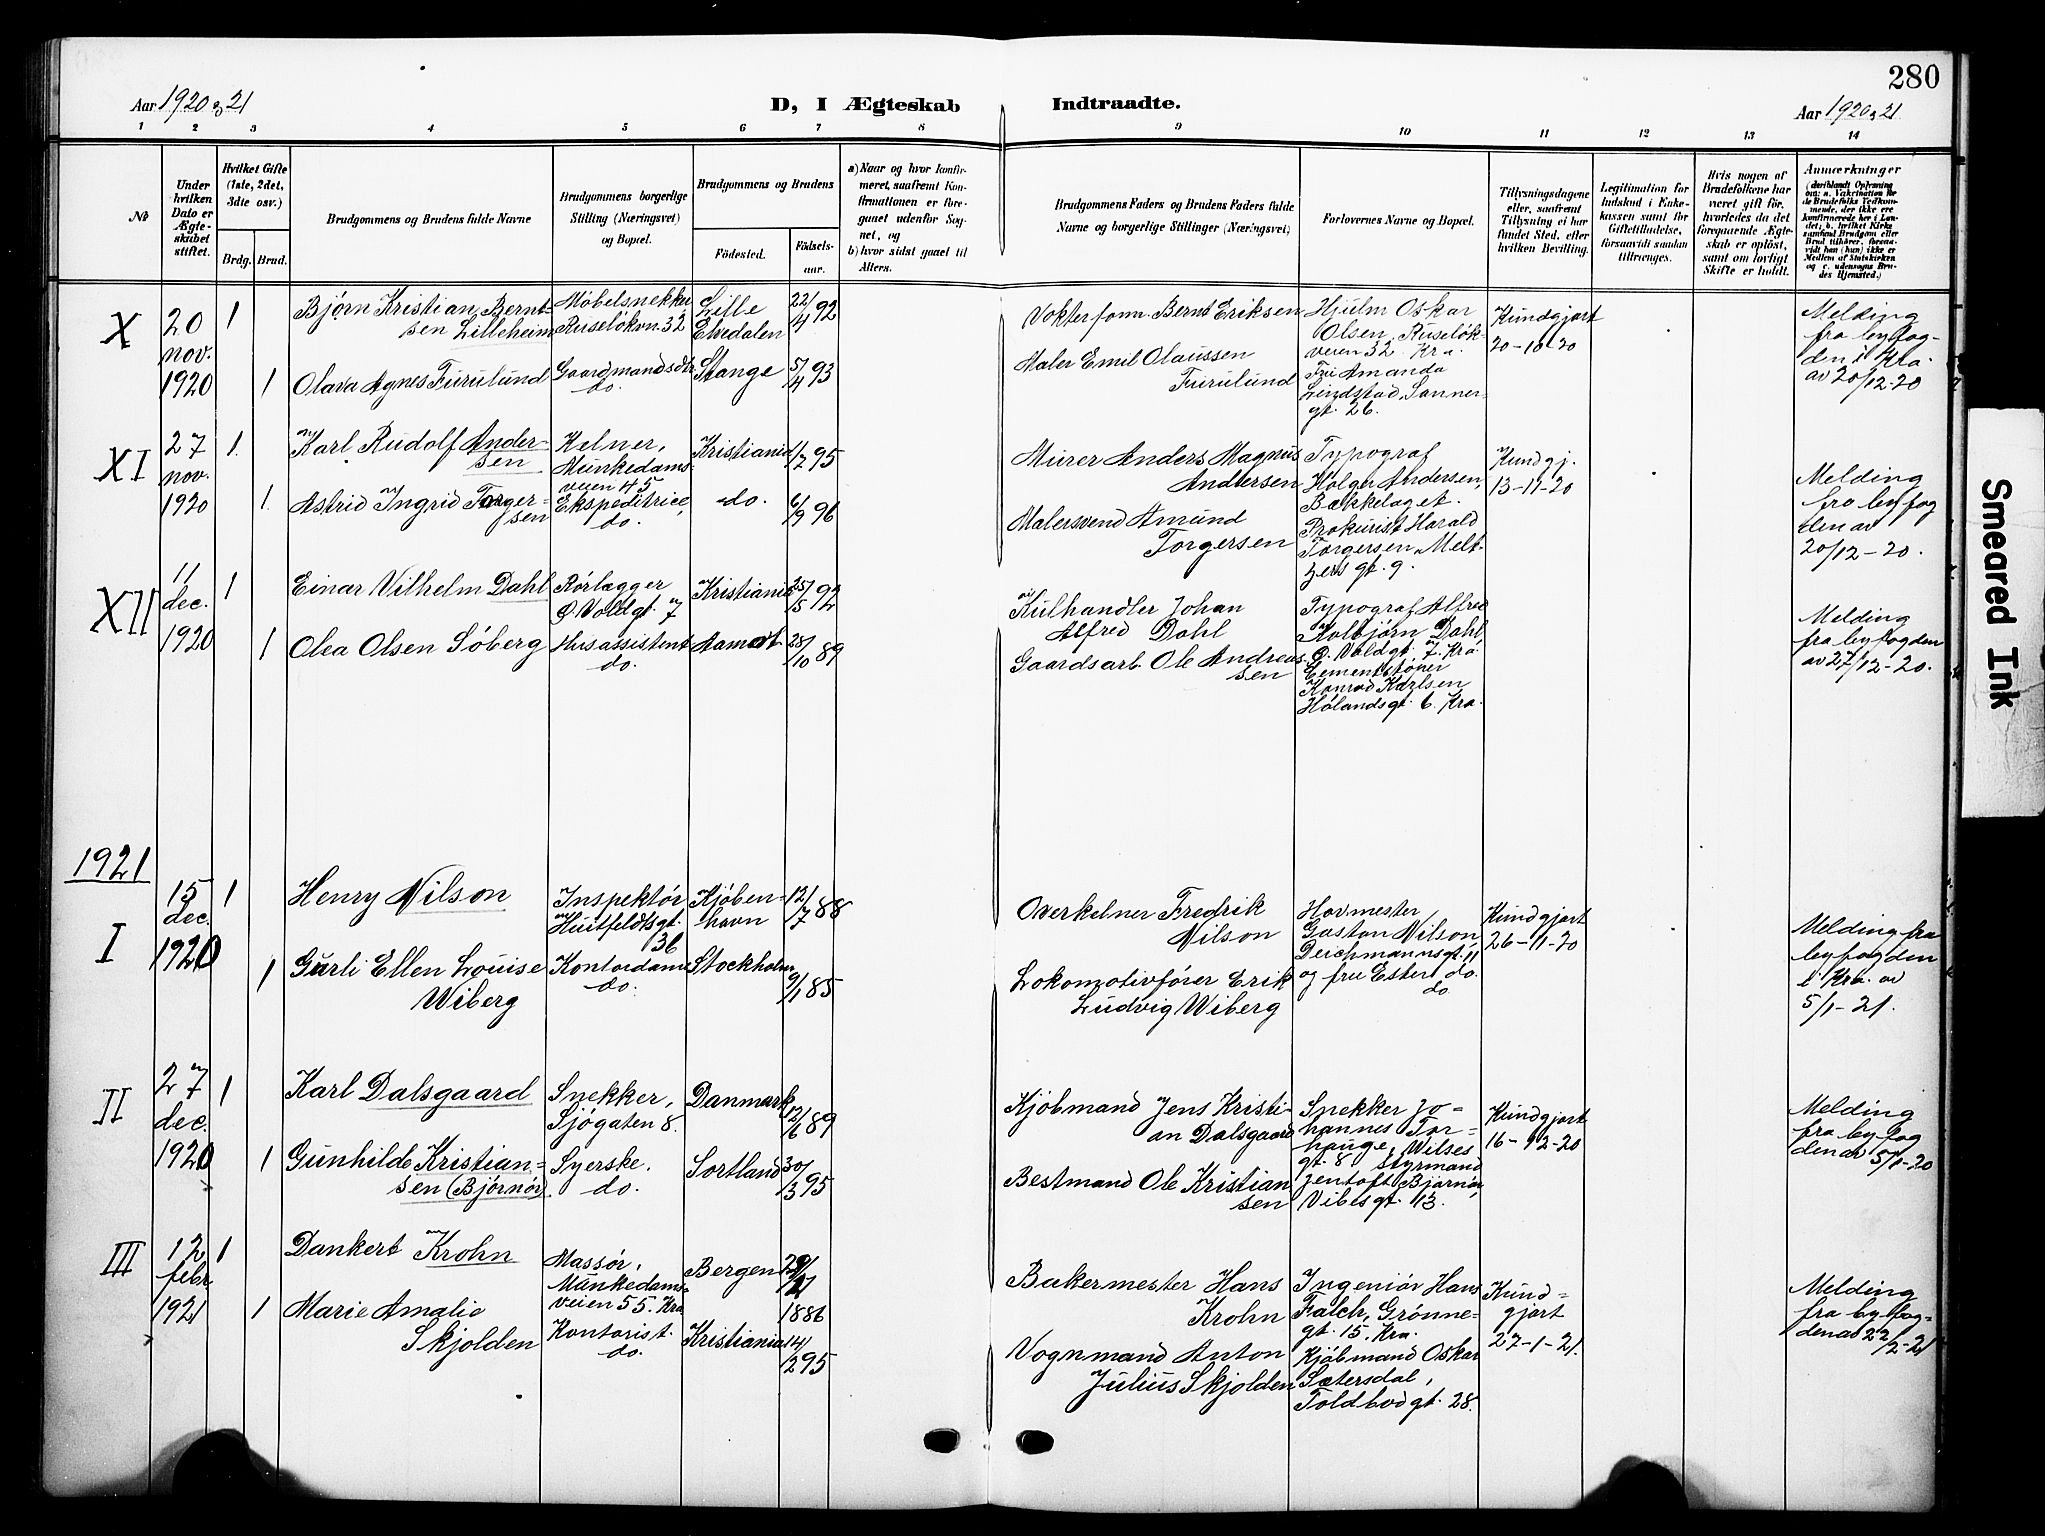 280
Aar 1920 & 21
D, I Ægteskab Indtraadte.
Aar 1920 & 21
1 2 3 4 5 6 7 8 9 10 11 12 13 14
No
Under hvilken Dato er Ægteskabet stiftet.
Hvilket Gifte (1ste, 2det, 3die osv.)
Brdg. Brud.
Brudgommens og Brudens fulde Navne
Brudgommens borgerlige Stilling (Næringsvei) og Bopæl.
Brudgommens og Brudens
Födested.
Födselsaar.
a) Naar og hvor konfirmeret, saafremt Konfirmationen er foregaaet udenfor Sognet, og
b) hvor sidst gaaet til Alters.
Brudgommens Faders og Brudens Faders fulde Navne og borgerlige Stillinger (Næringsvei)
Forlovernes Navne og Bopæl.
Tillysningsdagene eller, saafremt Tillysning ei har fundet Sted, efter hvilken Bevilling.
Legitimation for Indskud i Enkekassen samt for Giftetilladelse, forsaavidt saadan tiltrænges.
Hvis nogen af Brudefolkene har været gift før, hvorledes da det foregaaende Ægteskab er oplöst, samt om lovligt Skifte er holdt.
Anmærkninger
X
20 nov. 1920
1
Björn Kristian Berntsen Lilleheim
Möbelsnekker Ruselökvn 32
Lille Elvedalen
22/4 92
Vokter fom. Bernt Eriksen
Hjulm Oskar Olsen, Ruselökveien 32. Kra.
Kundgjort 20-10-20
Melding fra byfogden i Kra av 20/12-20
1
Olava Agnes Furulund
Gaardmandsdtr. do.
Stange
5/4 93
Maler Emil Olaussen Furulund
Fru Amanda Lindstad, Sannergt. 26.
XI
27 nov. 1920
1.
Karl Rudolf Andersen
Kelner, Munkedamsveien 45
Kristiania
1/7 95
Murer Anders Magnus Andersen
Typograf Holger Andersen, Bækkelaget.
Kundgj. 13-11-20
Melding fra byfogden av 20/12-20.
1.
Astrid Ingrid Torgersen
Ekspeditrice, do.
do.
6/9 96
Malersvend Amund Torgersen
Prokurist Harald Torgersen, Meltzers gt. 9.
XII
11 dec. 1920
1
Einar Vilhelm Dahl
Rörlægger Ø. Voldgt. 7
Kristiania
25/5 92
Kulhandler Johan Alfred Dahl
Typograf Alfred Kolbjörn Dahl, Ø. Voldgt. 7. Kra.
Melding fra byfogden av 27/12-20.
1
Olea Olsen Söberg
Husassistent do.
Aamot
28/10 89
Gaardsarb. Ole Andreassen
Cementstöper Konrad Karlsen Hölandsgt. 6. Kra.
1921
I
15 dec. 1920
1
Henry Nilson
Inspektör Huitfeldtsgt. 36
Kjöbenhavn
12/7 88
Overkelner Fredrik Nilson
Hovmester, Gaston Nilson Deichmannsgt. 11 og fru Ester do. do.
Kundgjort 26-11-20
Melding fra byfogden i Kra. av 5/1-21.
1
Gurli Ellen Louise Wiberg
Kontordame do.
Stockholm
9/1 85
Lokomotivförer Erik Ludvig Wiberg
II
27 dec. 1920
1
Karl Dalsgaard
Snekker, Sjögaten 8.
Danmark
12/6 89
Kjöbmand Jens Kristian Dalsgaard
Snekker Johannes Torhauge, Wilsesgt. 8
Kundgjort 16-12-20
Melding fra byfogden av 5/1-20
1
Gunhilde Kristiansen (Björnör)
Syerske. do.
Sortland
30/3 95
Bestmand Ole Kristiansen
Styrmand Jentoft Björnör, Vibesgt. 13.
III
12 febr. 1921
1
Dankert Krohn
Massör, Munkedamsveien 55. Kra
Bergen
1886
Bakermester Hans Krohn
Ingeniör Hans Falch, Grönnegt. 15. Kra.
Kundgjort 27-1-21.
Melding fra byfogden av 22/2-21
1
Marie Amalie Skjolden
Kontorist. do.
Kristiania
14/2 95
Vognmand Anton Julius Skjolden
Kjöbmand Oskar Sætersdal, Toldbodgt. 28.
Smeared Ink